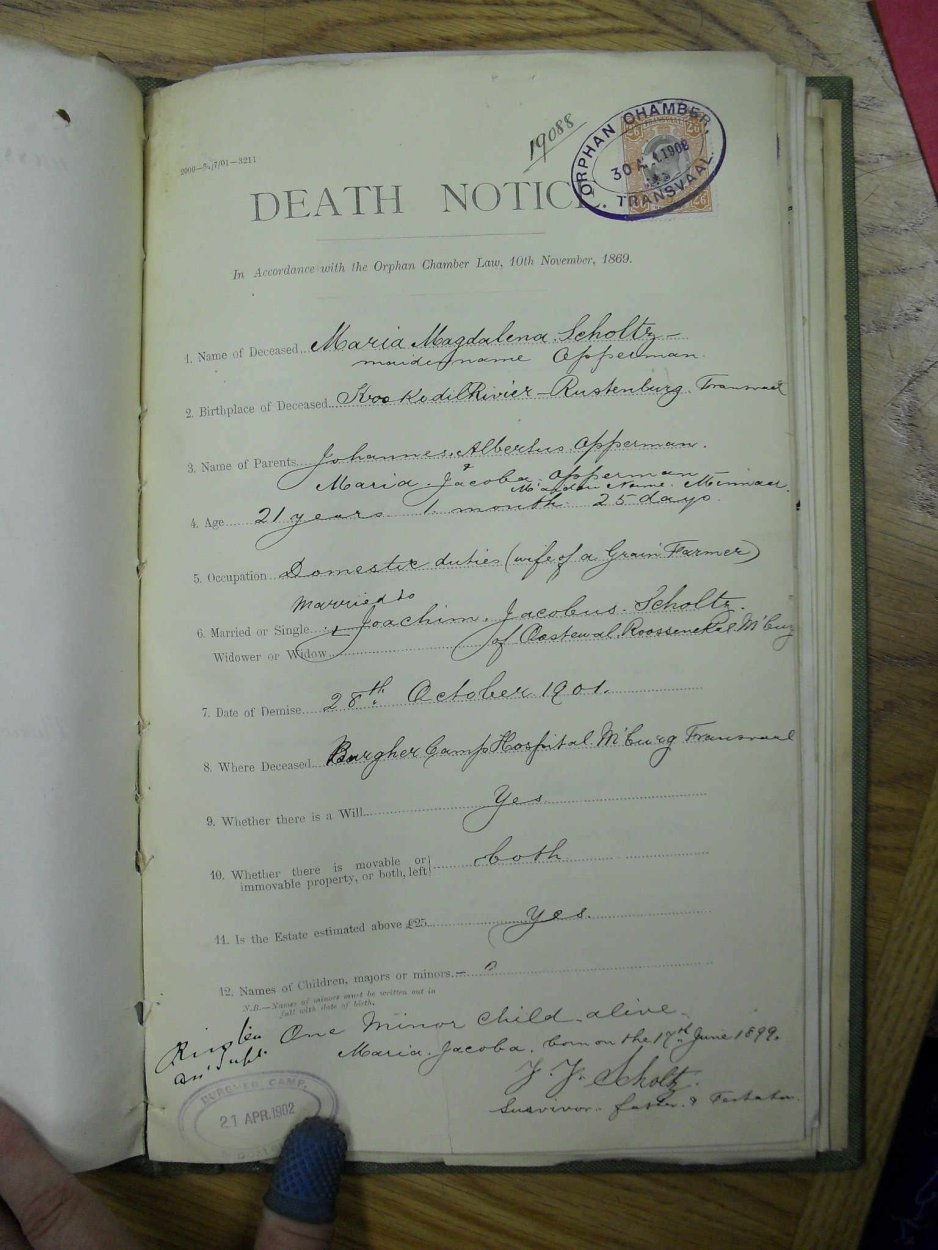 19088
ORPHAN CHAMBER,
30 1908
TRANSVAAL.
2000—7/01—3211
DEATH NOTIC
In Accordance with the Orphan Chamber Law, 10th November, 1869.
1. Name of Deceased Maria Magdalena Scholtz –
maiden name Opperman.
2. Birthplace of Deceased Krookodil Rivier – Rustenburg Transvaal
3. Name of Parents Johannes Albertus Opperman.
& Maria Jacoba Opperman
Maiden Name Minnaar.
4. Age 21 years 1 month 25 days.
5. Occupation Domestic duties (wife of a Grain Farmer)
Married to
6. Married or Single Joachim Jacobus Scholtz.
Widower or Widow of Roossenekal M'burg
7. Date of Demise 28th October 1901.
8. Where Deceased Burgher Camp Hospital M'burg Transvaal
9. Whether there is a Will Yes
10. Whether there is movable or immovable property, or both, left both
11. Is the Estate estimated above £25 Yes.
12. Names of Children, majors or minors.—
N.B.—Names of minors must be written out in
full with date of birth.
One Minor child alive
Maria Jacoba born on the 19th June 1899.
J. J. Scholtz.
Survivor &
BURGHER CAMP.
21 APR. 1902